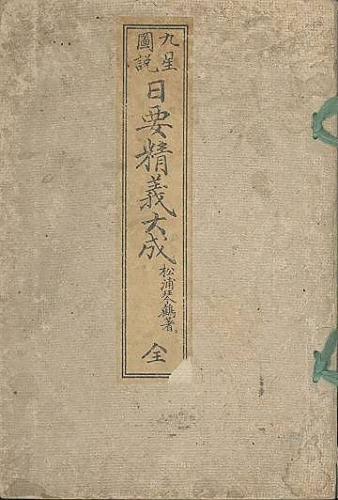 九星圖説
日要精義大成
松浦琴鶴著
全